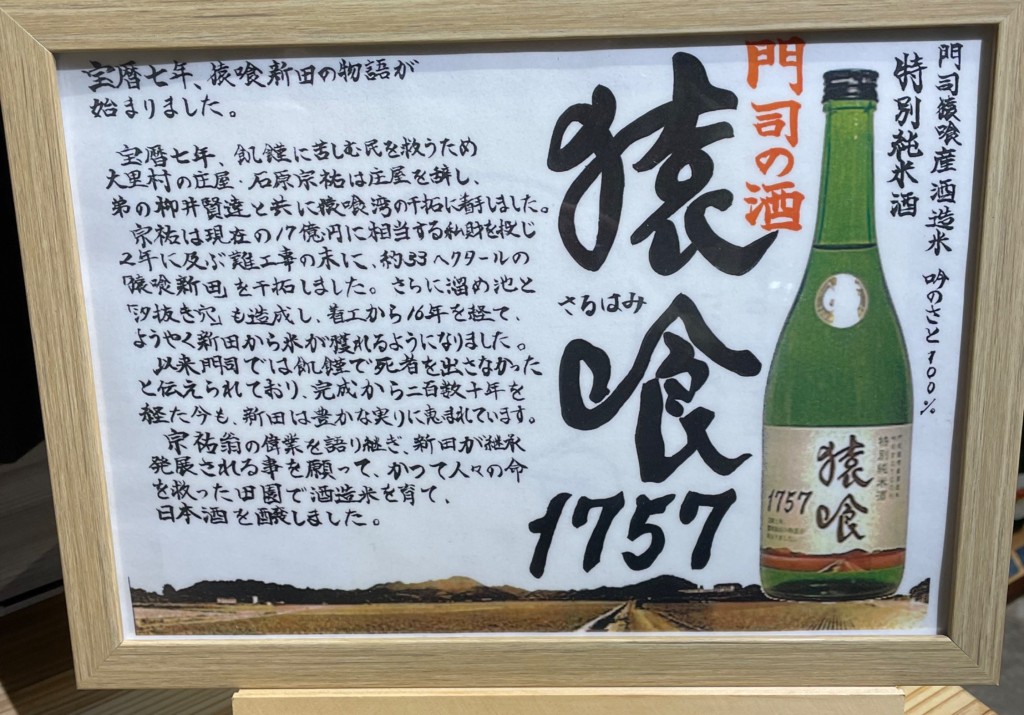 門司猿喰産酒造米 吟のさと100%
特別純米酒
門司の酒
猿喰
さるはみ
1757
宝暦七年、猿喰新田の物語が
始まりました。
宝暦七年、飢饉に苦しむ民を救うため
大里村の庄屋・石原宗祐は庄屋を辞し、
弟の柳井賢達と共に猿喰湾の干拓に着手しました。
宗祐は現在の17億円に相当する私財を投じ
2年に及ぶ難工事の末に、約33ヘクタールの
「猿喰新田」を干拓しました。さらに溜め池と
「汐抜き穴」も造成し、着工から16年を経て、
ようやく新田から米が獲れるようになりました。
以来門司では飢饉で死者を出さなかった
と伝えられており、完成から二百数十年を
経た今も、新田は豊かな実りに恵まれています。
宗祐翁の偉業を語り継ぎ、新田が継承
発展される事を願って、かつて人々の命
を救った田園で酒造米を育て、
日本酒を醸しました。
特別純米酒
猿喰
1757